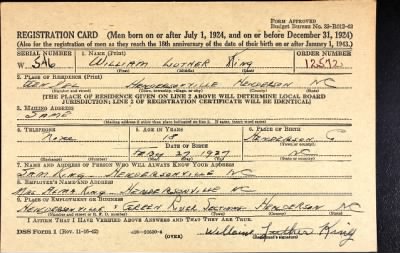 FORM APPROVED
Budget Bureau No. 33-R012-42
REGISTRATION CARD—(Men born on or after July 1, 1924, and on or before December 31, 1924)
(Also for the registration of men as they reach the 18th anniversary of the date of their birth on or after January 1, 1943.)
SERIAL NUMBER 1. NAME (Print) ORDER NUMBER
W 546 William Luther King 12,572
(First) (Middle) (Last)
2. PLACE OF RESIDENCE (Print)
Hendersonville Henderson NC
(THE PLACE OF RESIDENCE GIVEN ON LINE 2 ABOVE WILL DETERMINE LOCAL BOARD
JURISDICTION; LINE 2 OF REGISTRATION CERTIFICATE WILL BE IDENTICAL)
3. MAILING ADDRESS
Same
(Mailing address if other than place indicated on line 2. If same, insert word same)
4. TELEPHONE 5. AGE IN YEARS 6. PLACE OF BIRTH
None 18 Henderson C
DATE OF BIRTH
27 1927 NC
7. NAME AND ADDRESS OF PERSON WHO WILL ALWAYS KNOW YOUR ADDRESS
Sam King Hendersonville NC
8. EMPLOYER'S NAME AND ADDRESS
King Hendersonville NC
9. PLACE OF EMPLOYMENT OR BUSINESS
Hendersonville Green River Section Henderson NC
I AFFIRM THAT I HAVE VERIFIED ABOVE ANSWERS AND THAT THEY ARE TRUE.
DSS Form 1 (Rev. 11-16-42) (OVER) William Luther King
(Registrant's signature)